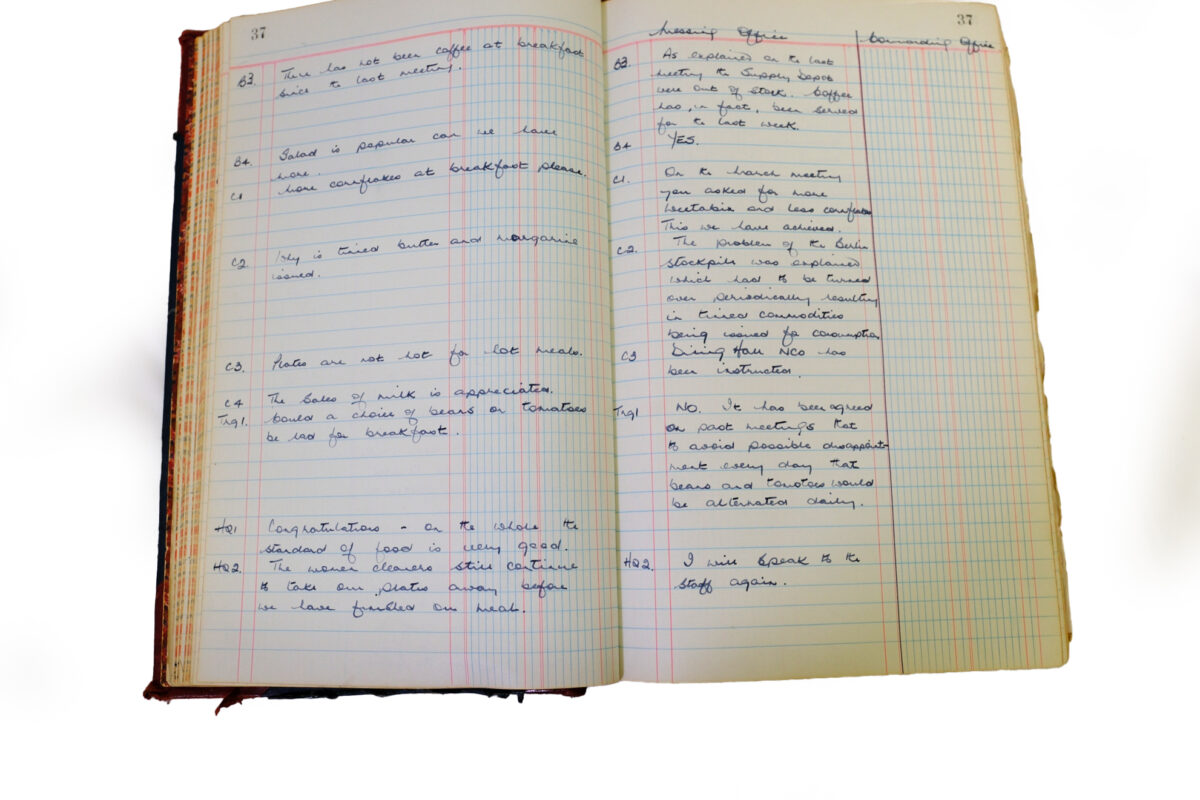 37
B3. There has not been coffee at breakfast
since the last meeting.
B4. Salad is popular can we have
more.
C1 More cornflakes at breakfast please.
C2 Why is tinned butter and margarine
issued.
C3. Plates are not hot for hot meals.
C4 The sales of milk is appreciated.
Trg1. Could a choice of beans or tomatoes
be had for breakfast.
HQ1 Congratulations - on the whole the
standard of food is very good.
HQ2. The women cleaners still continue
to take our plates away before
we have finished our meal.
37
Messing Office Commanding Office
B3. As explained on the last
meeting the Supply Depot
were out of stock. Coffee
has, in fact, been served
for the last week.
B4 YES.
C1. On the March meeting
you asked for more
Weetabix and less cornflakes
This we have achieved.
C2. The problem of the Berlin
stockpile was explained
which had to be turned
over periodically resulting
in tinned commodities
being issued for consumption
C3 Dining Hall NCO has
been instructed.
Trg1 NO. It has been agreed
on past meetings that
to avoid possible disappoint-
ment every day that
beans and tomatoes would
be alternated daily.
HQ2. I will speak to the
staff again.